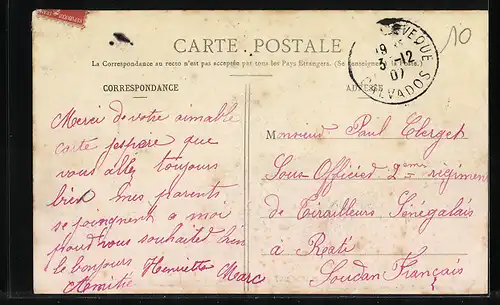 CARTE POSTALE
La Correspondance au recto n'est pas acceptée par tous les Pays Etrangers. (Se renseigner à la Poste.)
CORRESPONDANCE
ADRESSE
EVEQUE
19
3-12
07
CALVADOS
10
Merci de votre aimable
carte j'espere que
vous allez toujours
bien mes parents
se joingnent a moi
pour vous souhaited bien
le bonjours Henriette Marc
Amitié
Monsieur Paul Clerget
Sous Officied 2eme régimen
de Tirailleurs Sénégalais
à Kati
Soudan Français